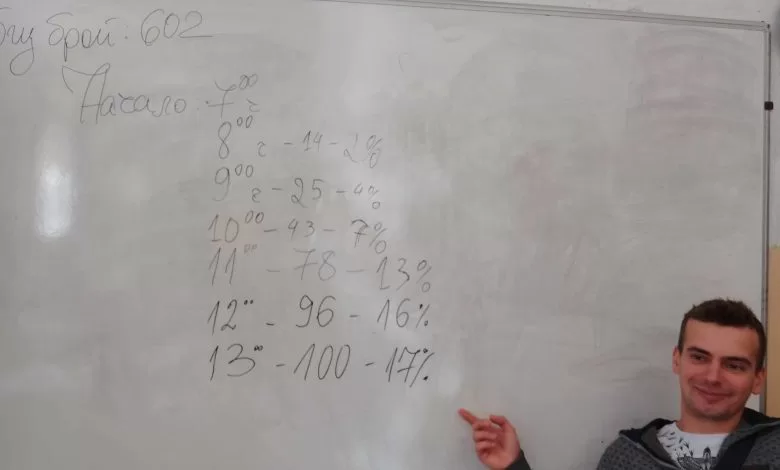 брой: 602
Начало: 7⁰⁰ г
8⁰⁰ г - 14 - 2%
9⁰⁰ г - 25 - 4%
10⁰⁰ - 43 - 7%
11⁰⁰ - 78 - 13%
12⁰⁰ - 96 - 16%
13⁰⁰ - 100 - 17%